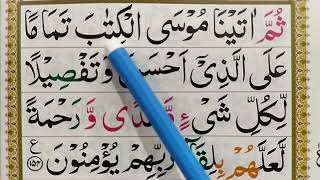 ثُمَّ اٰتَيْنَا مُوْسَى الْكِتٰبَ تَمَامًا
عَلَى الَّذِىْۤ اَحْسَنَ وَتَفْصِيْلًا
لِّكُلِّ شَىْءٍ وَّهُدًى وَّ رَحْمَةً
لَّعَلَّهُمْ بِلِقَآءِ رَبِّهِمْ يُؤْمِنُوْنَ ﴿۱۵۴﴾ ع